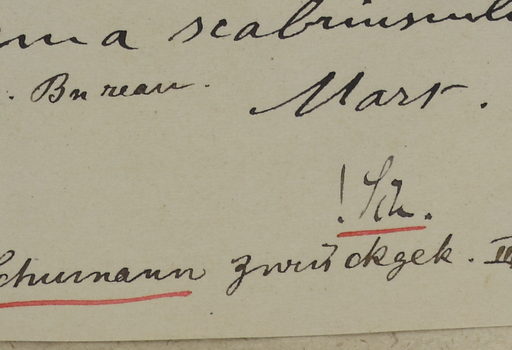 ma scabriuscul
. Bureau. Mart.
! Sch.
Schumann zurückgek. III